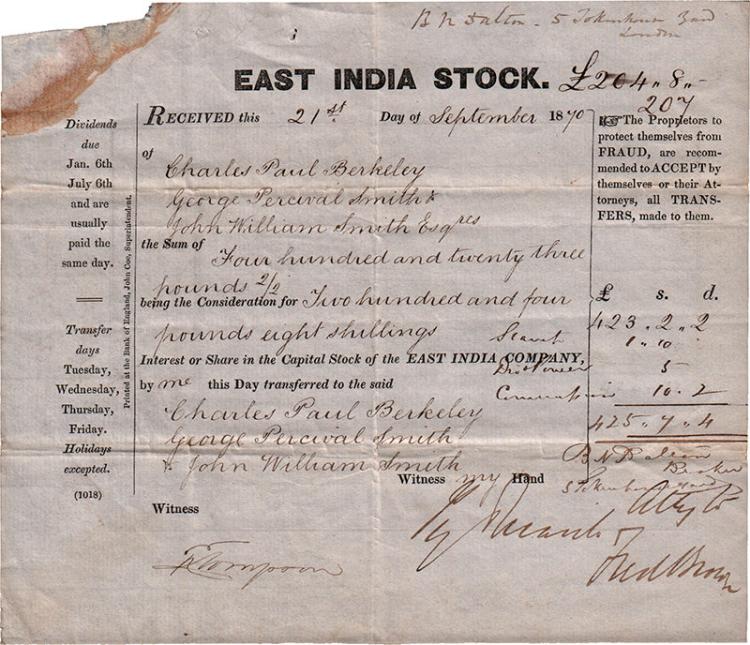 B N Dalton - 5 Tokenhouse Yard
London
EAST INDIA STOCK. £204 " 8 " -
207
RECEIVED this 21st. Day of September 1870
of
Charles Paul Berkeley
George Percival Smith &
John William Smith Esqres
the Sum of
Four hundred and twenty three
pounds 2/2
being the Consideration for Two hundred and four
pounds eight shillings
Interest or Share in the Capital Stock of the EAST INDIA COMPANY,
by me this Day transferred to the said
Charles Paul Berkeley
George Percival Smith
& John William Smith
Witness my Hand
Witness
Dividends
due
Jan. 6th
July 6th
and are
usually
paid the
same day.
Transfer
days
Tuesday,
Wednesday,
Thursday,
Friday.
Holidays
excepted.
(1018)
Printed at the Bank of England, John Coe, Superintendent.
☞ The Proprietors to
protect themselves from
FRAUD, are recom-
mended to ACCEPT by
themselves or their At-
torneys, all TRANS-
FERS, made to them.
£ s. d.
423 . 2 . 2
1 " 10
5
10 . 2
425 " 7 . 4
B N Dalton
Broker
5 Tokenhouse Yard
Atty to
Fred Brown